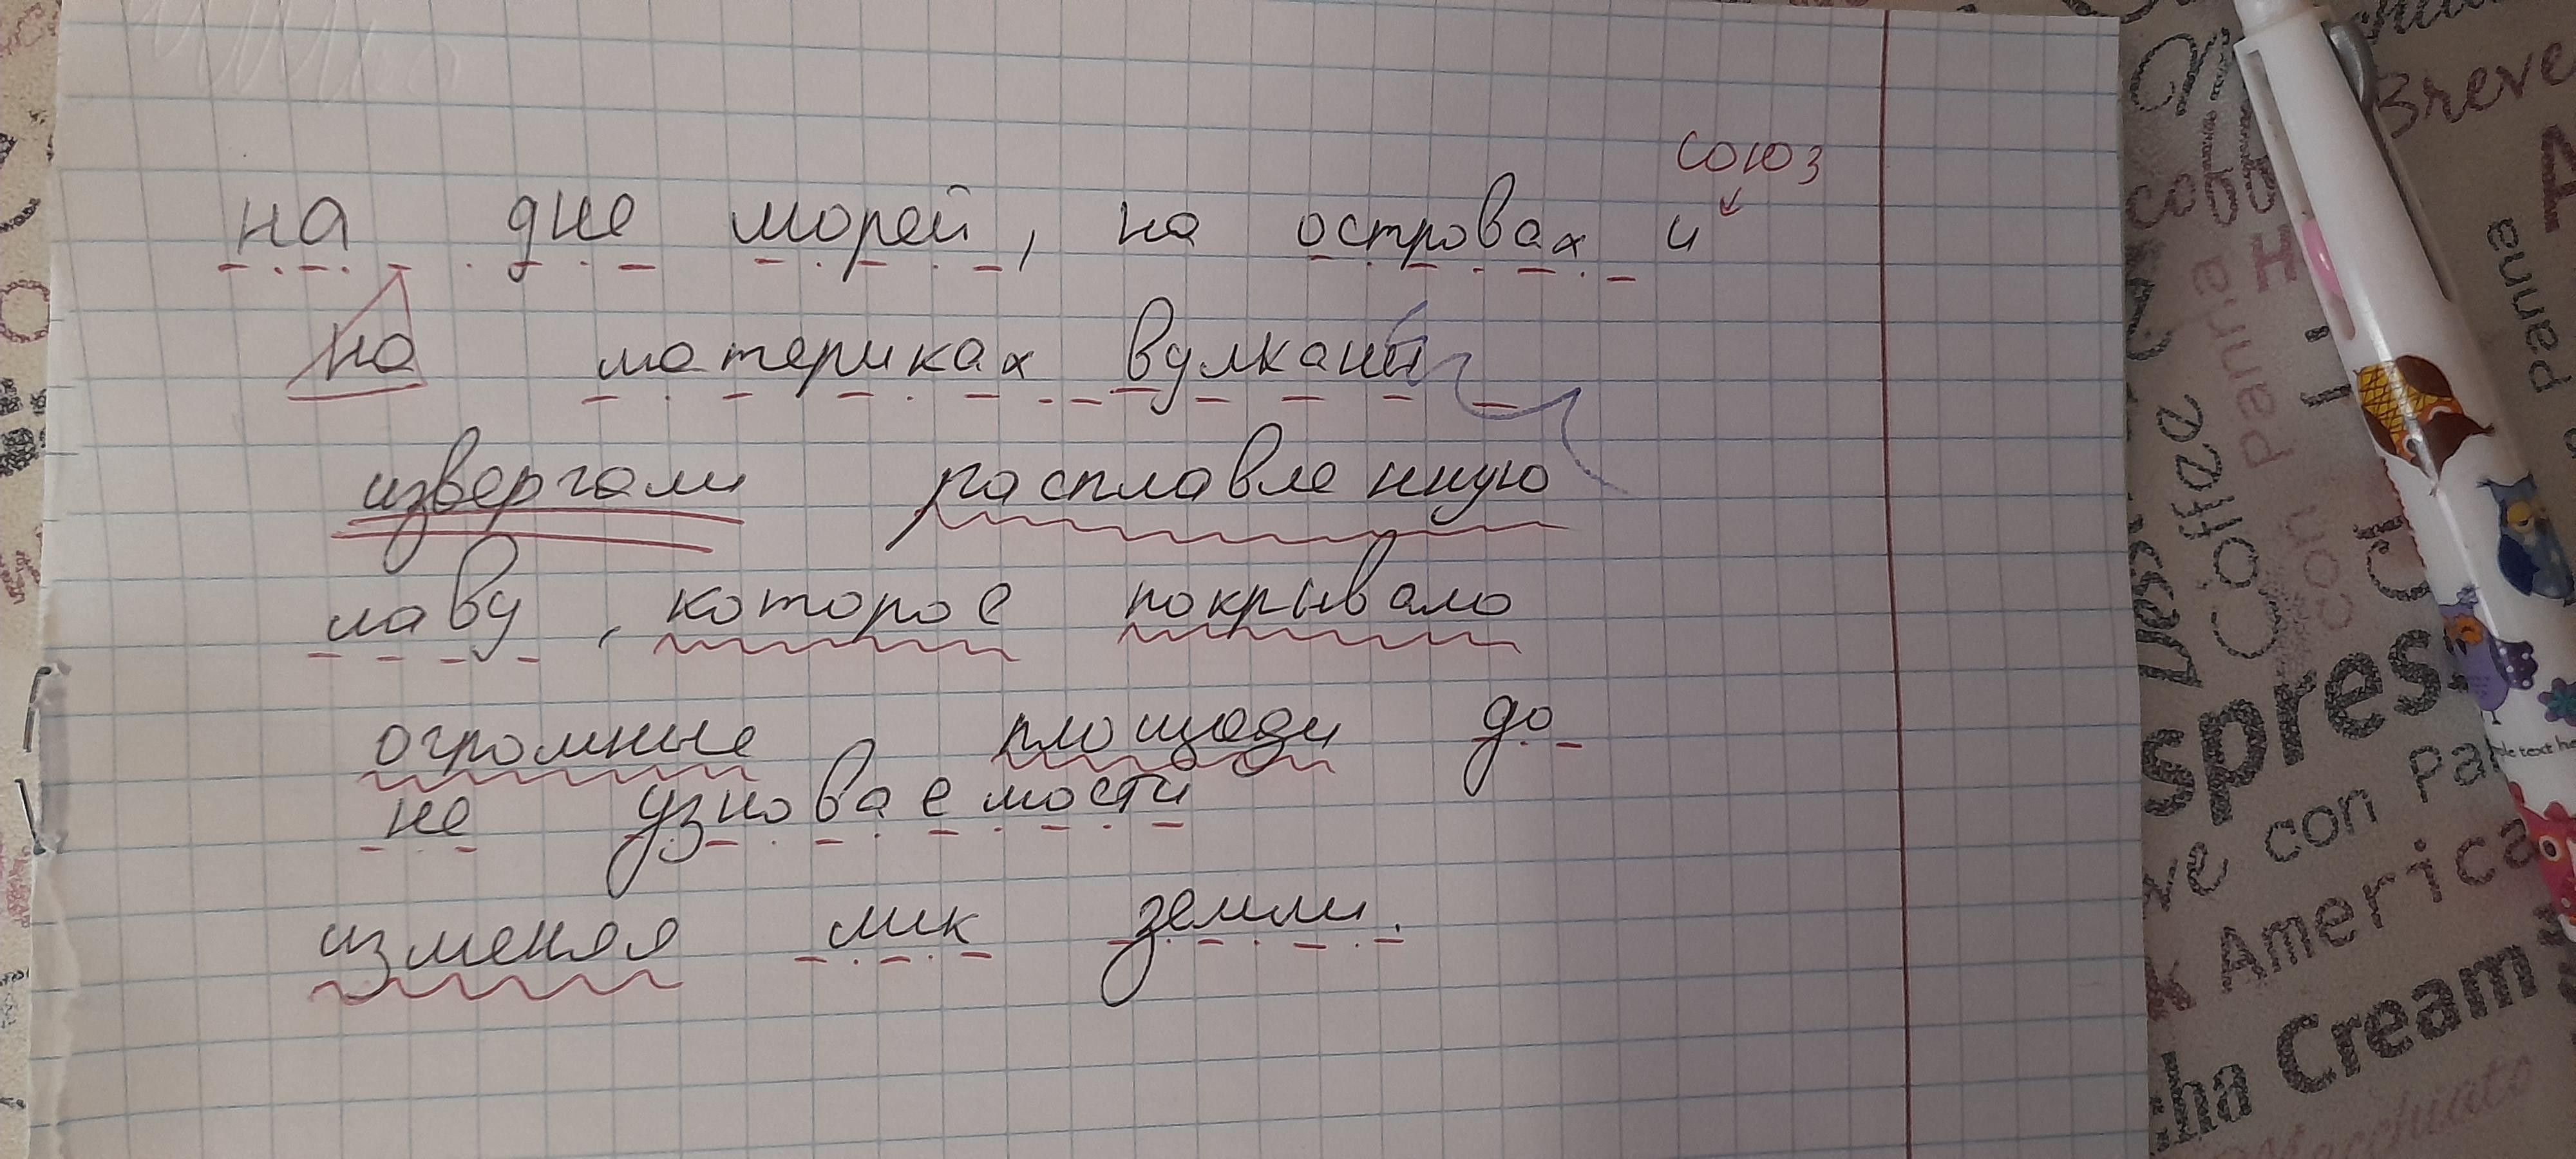 союз
на дне морей, на островах и
на материках вулканы
извергали расплавленную
лаву, которое покрывало
огромные площади до
не узноваемости
изменяя лик земли.
Breve
Panna
con Panna
Coffee
con
Espress
con pa
America
Cream
Macchiato